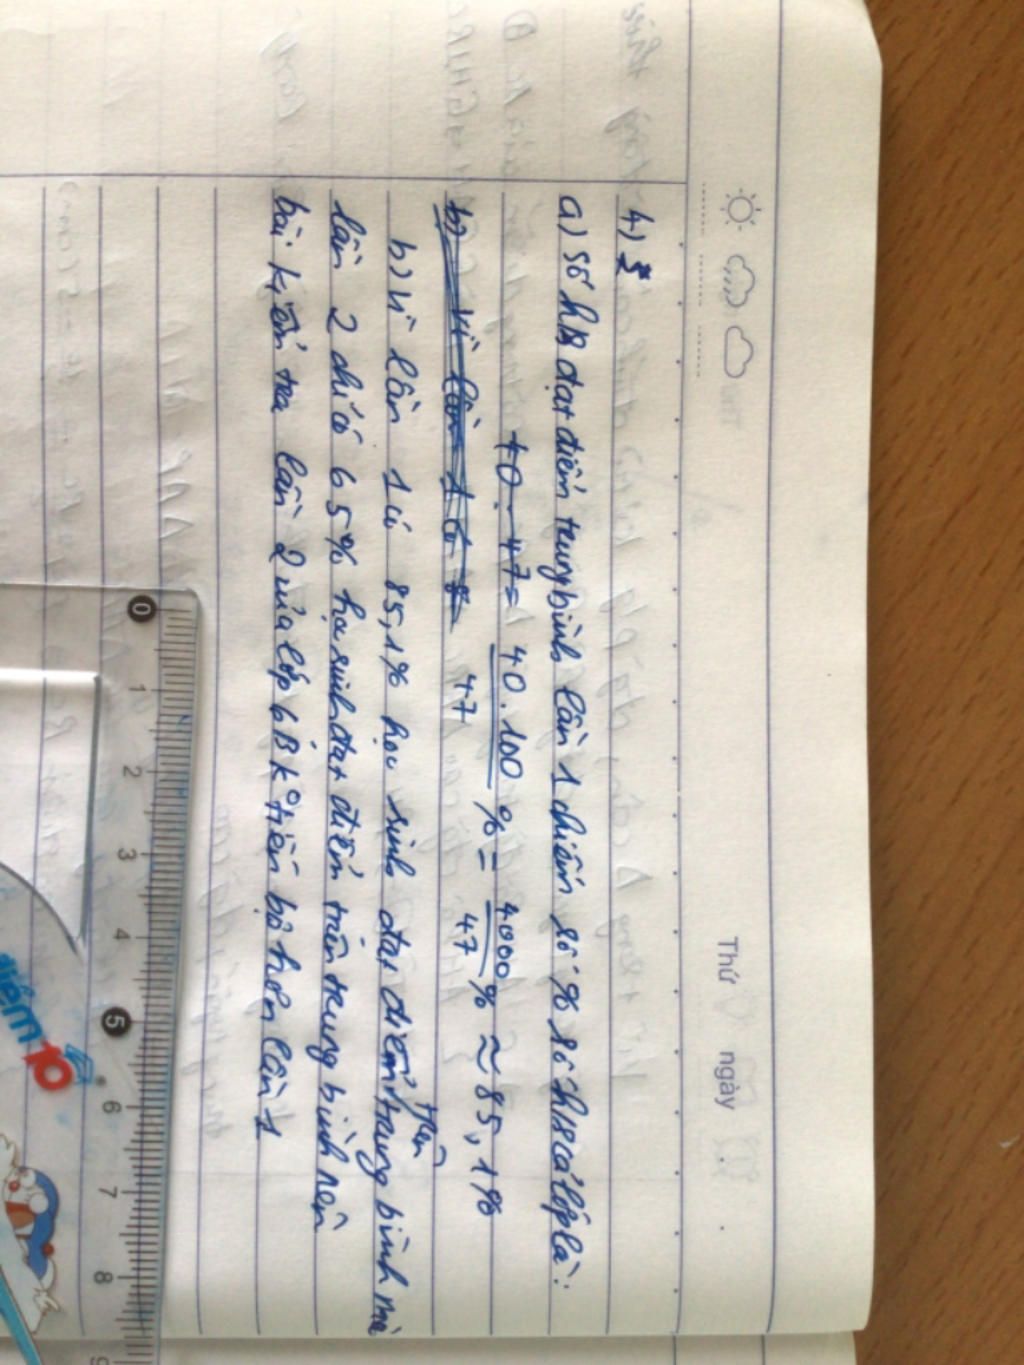 Thứ ngày
4)
a) Số hs đạt điểm trung bình lần 1 chiếm số % số hs cả lớp là:
40 : 47 = 40.100/47 % = 4000/47 % ≈ 85,1%
b) vì lần 1 có 8
b) vì lần 1 có 85,1% học sinh đạt điểm trên trung bình mà
lần 2 chỉ có 65% học sinh đạt điểm trên trung bình nên
bài kiểm tra lần 2 của lớp 6B k° tiến bộ hơn lần 1
0 1 2 3 4 5 6 7 8 9
điểm 10